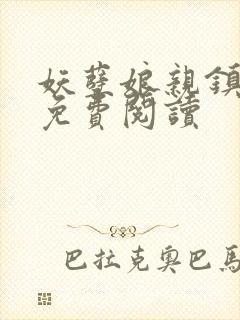 妖孽娘親鎮
免費閱讀
巴拉克奧巴馬